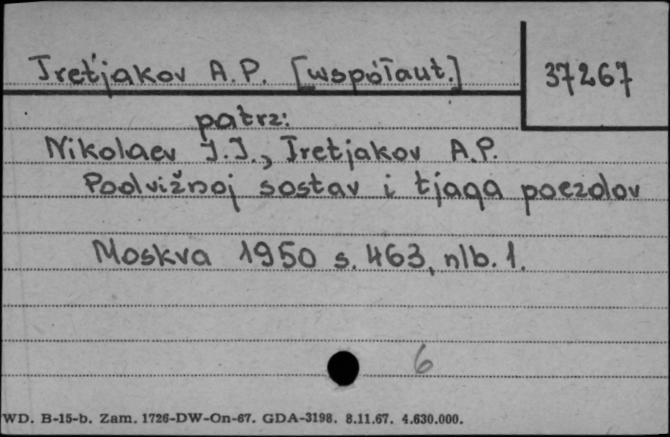 Tret'jakov A.P. [współaut.]
37267
patrz:
Nikolaev I.I., Tretjakov A.P.
Podvižnoj sostav i tjaga poezdov
Moskva 1950 s. 463, nlb. 1.
6
WD. B-15-b. Zam. 1726-DW-On-67. GDA-3198. 8.11.67. 4.630.000.